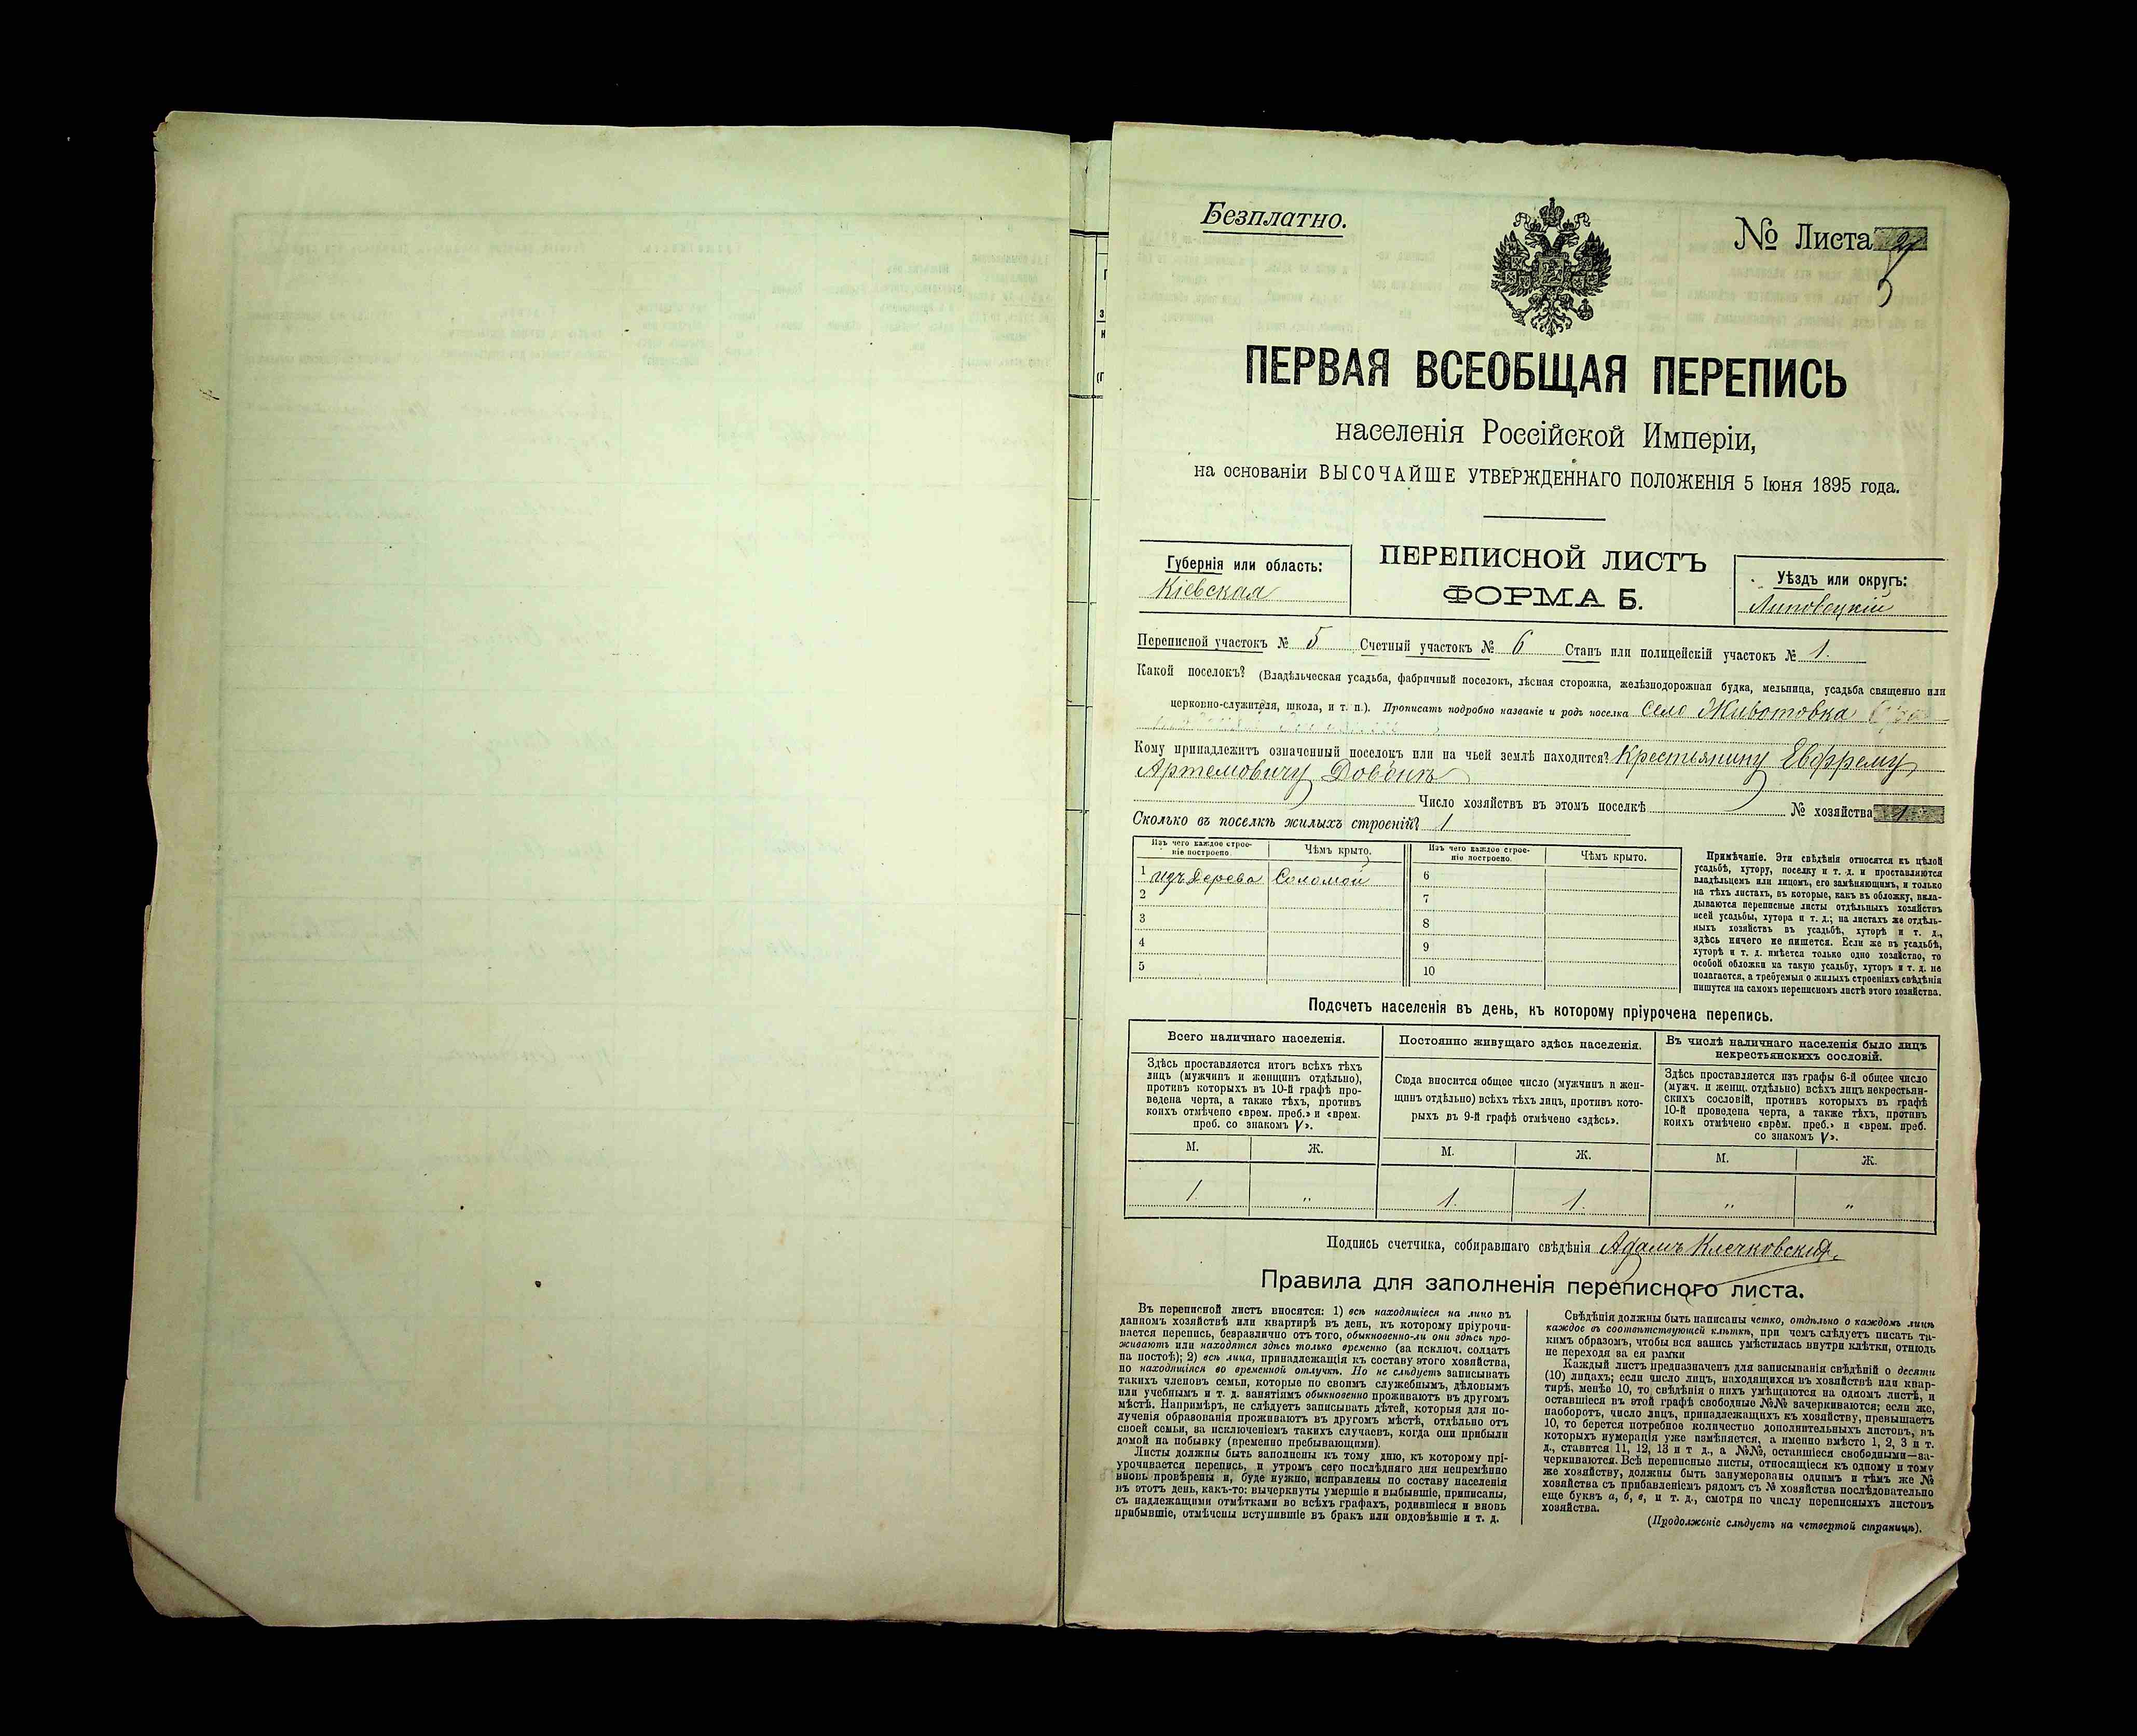 Безплатно.
№ Листа
ПЕРВАЯ ВСЕОБЩАЯ ПЕРЕПИСЬ
населенія Россійской Имперіи,
на основаніи ВЫСОЧАЙШЕ УТВЕРЖДЕННАГО ПОЛОЖЕНІЯ 5 Іюня 1895 года.
Губернія или область:
Кіевская
ПЕРЕПИСНОЙ ЛИСТЪ
ФОРМА Б.
Уѣздъ или округъ:
Липовецкій
Переписной участокъ № 5 Счетный участокъ № 6 Станъ или полицейскій участокъ № 1.
Какой поселокъ? (Владѣльческая усадьба, фабричный поселокъ, лѣсная сторожка, желѣзнодорожная будка, мельница, усадьба священно или
церковно-служителя, школа, и т. п.). Прописать подробно названіе и родъ поселка Село Животовка
Кому принадлежитъ означенный поселокъ или на чьей землѣ находится? Крестьянину Евфрему
Артемовичу
Число хозяйствъ въ этомъ поселкѣ № хозяйства 1
Сколько въ поселкѣ жилыхъ строеній? 1
Изъ чего каждое строе-
ніе построено.
Чѣмъ крыто.
Изъ чего каждое строе-
ніе построено.
Чѣмъ крыто.
1 изъ дерева Соломой 6
2 7
3 8
4 9
5 10
Примѣчаніе. Эти свѣдѣнія относятся къ цѣлой
усадьбѣ, хутору, поселку и т. д. и проставляются
владѣльцемъ или лицомъ, его замѣняющимъ, и только
на тѣхъ листахъ, въ которые, какъ въ обложку, вкла-
дываются переписные листы отдѣльныхъ хозяйствъ
всей усадьбы, хутора и т. д.; на листахъ же отдѣль-
ныхъ хозяйствъ въ усадьбѣ, хуторѣ и т. д.,
здѣсь ничего не пишется. Если же въ усадьбѣ,
хуторѣ и т. д. имѣется только одно хозяйство, то
особой обложки на такую усадьбу, хуторъ и т. д. не
полагается, а требуемыя о жилыхъ строеніяхъ свѣдѣнія
пишутся на самомъ переписномъ листѣ этого хозяйства.
Подсчетъ населенія въ день, къ которому пріурочена перепись.
Всего наличнаго населенія.
Здѣсь проставляется итогъ всѣхъ тѣхъ
лицъ (мужчинъ и женщинъ отдѣльно),
противъ которыхъ въ 10-й графѣ про-
ведена черта, а также тѣхъ, противъ
коихъ отмѣчено «врем. преб.» и «врем.
преб. со знакомъ V».
Постоянно живущаго здѣсь населенія.
Сюда вносится общее число (мужчинъ и жен-
щинъ отдѣльно) всѣхъ тѣхъ лицъ, противъ кото-
рыхъ въ 9-й графѣ отмѣчено «здѣсь».
Въ числѣ наличнаго населенія было лицъ
некрестьянскихъ сословій.
Здѣсь проставляется изъ графы 6-й общее число
(мужч. и женщ. отдѣльно) всѣхъ лицъ некрестьян-
скихъ сословій, противъ которыхъ въ графѣ
10-й проведена черта, а также тѣхъ, противъ
коихъ отмѣчено «врем. преб.» и «врем. преб.
со знакомъ V».
М. Ж. М. Ж. М. Ж.
1. " 1. 1. " "
Подпись счетчика, собиравшаго свѣдѣнія Адамъ Клечковскій
Правила для заполненія переписного листа.
Въ переписной листъ вносятся: 1) всѣ находящіеся на лицо въ
данномъ хозяйствѣ или квартирѣ въ день, къ которому пріурочи-
вается перепись, безразлично отъ того, обыкновенно-ли они здѣсь про-
живаютъ или находятся здѣсь только временно (за исключ. солдатъ
на постоѣ); 2) всѣ лица, принадлежащія къ составу этого хозяйства,
но находящіяся во временной отлучкѣ. Но не слѣдуетъ записывать
такихъ членовъ семьи, которые по своимъ служебнымъ, дѣловымъ
или учебнымъ и т. д. занятіямъ обыкновенно проживаютъ въ другомъ
мѣстѣ. Напримѣръ, не слѣдуетъ записывать дѣтей, которыя для по-
лученія образованія проживаютъ въ другомъ мѣстѣ, отдѣльно отъ
своей семьи, за исключеніемъ такихъ случаевъ, когда они прибыли
домой на побывку (временно пребывающими).
Листы должны быть заполнены къ тому дню, къ которому прі-
урочивается перепись, и утромъ сего послѣдняго дня непремѣнно
вновь провѣрены и, буде нужно, исправлены по составу населенія
въ этотъ день, какъ-то: вычеркнуты умершіе и выбывшіе, приписаны,
съ надлежащими отмѣтками во всѣхъ графахъ, родившіеся и вновь
прибывшіе, отмѣчены вступившіе въ бракъ или овдовѣвшіе и т. д.
Свѣдѣнія должны быть написаны четко, отдѣльно о каждомъ лицѣ
каждое въ соотвѣтствующей клѣткѣ, при чемъ слѣдуетъ писать та-
кимъ образомъ, чтобы вся запись умѣстилась внутри клѣтки, отнюдь
не переходя за ея рамки
Каждый листъ предназначенъ для записыванія свѣдѣній о десяти
(10) лицахъ; если число лицъ, находящихся въ хозяйствѣ или квар-
тирѣ, менѣе 10, то свѣдѣнія о нихъ умѣщаются на одномъ листѣ, и
оставшіеся въ этой графѣ свободные №№ зачеркиваются; если же,
наоборотъ, число лицъ, принадлежащихъ къ хозяйству, превышаетъ
10, то берется потребное количество дополнительныхъ листовъ, въ
которыхъ нумерація уже измѣняется, а именно вмѣсто 1, 2, 3 и т.
д., ставится 11, 12, 13 и т д., а №№, оставшіеся свободными—за-
черкиваются. Всѣ переписные листы, относящіеся къ одному и тому
же хозяйству, должны быть занумерованы однимъ и тѣмъ же №
хозяйства съ прибавленіемъ рядомъ съ № хозяйства послѣдовательно
еще буквъ а, б, в, и т. д., смотря по числу переписныхъ листовъ
хозяйства.
(Продолженіе слѣдуетъ на четвертой страницѣ).